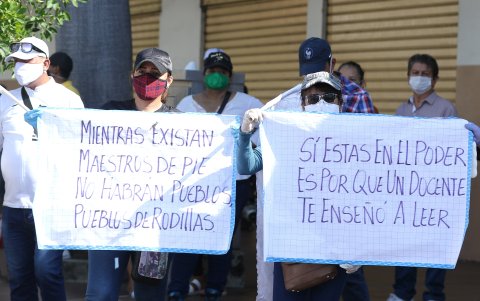 MIENTRAS EXISTAN
MAESTROS DE PIE
NO HABRAN PUEBLOS
PUEBLOS DE RODILLAS
SÍ ESTAS EN EL PODER
ES POR QUE UN DOCENTE
TE ENSEÑÓ A LEER